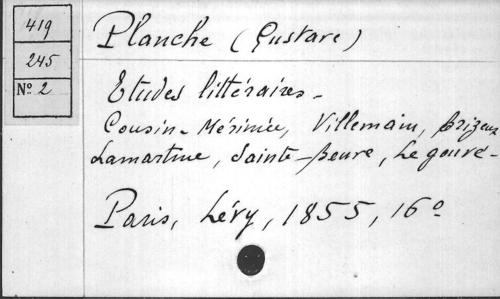 419
245
Nº 2
Planche (Gustave)
Etudes littéraires -
Cousin - Mérimée, Villemain, Brizeux
Lamartine, Sainte-Beuve, Legouvé -
Paris, Lévy, 1855, 16º